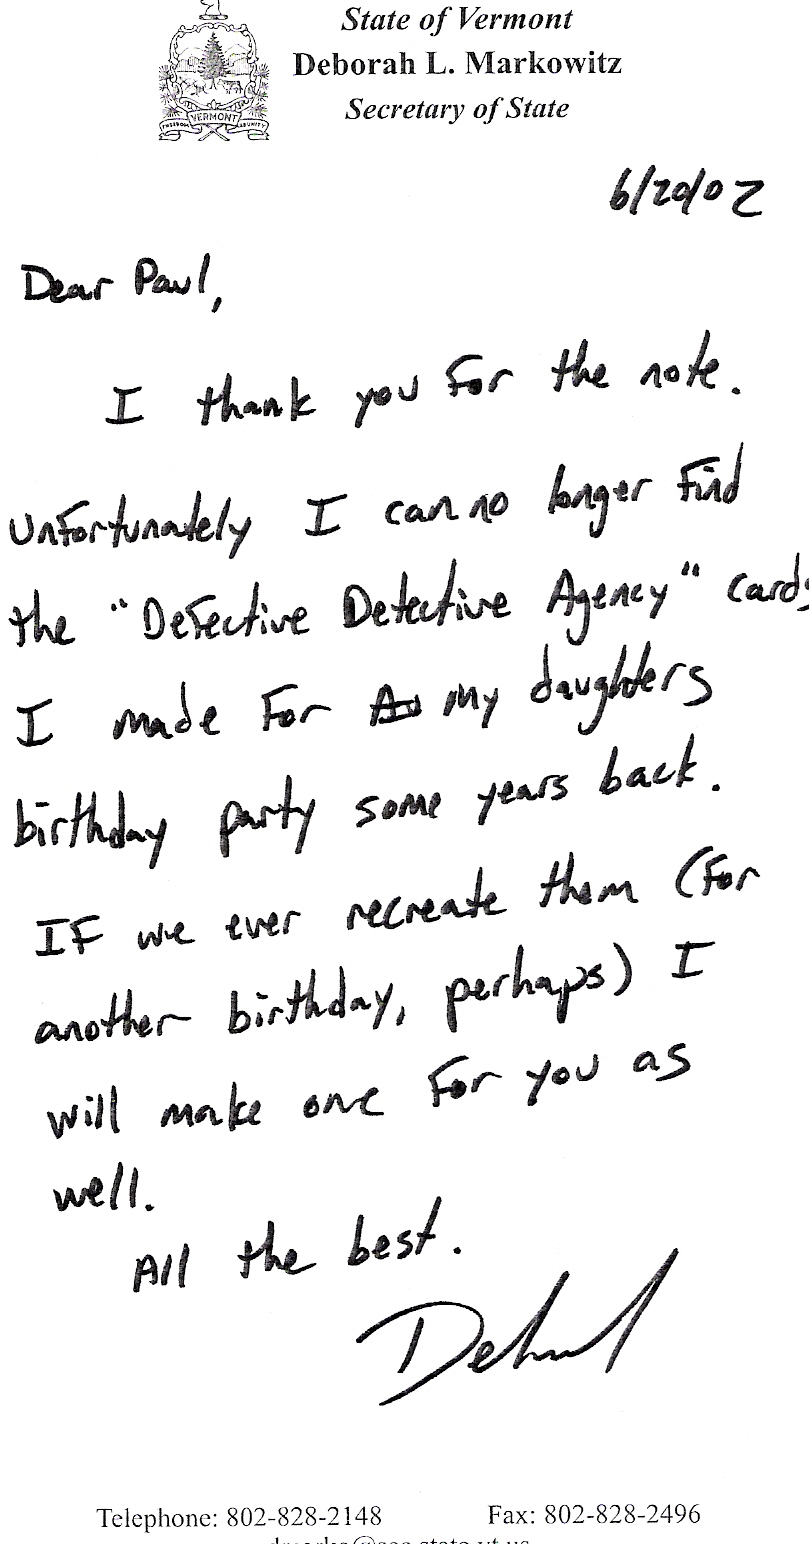 State of Vermont
Deborah L. Markowitz
Secretary of State
FREEDOM VERMONT & UNITY
6/20/02
Dear Paul,
I thank you for the note.
Unfortunately I can no longer find
the "Defective Detective Agency" cards
I made for my daughters
birthday party some years back.
If we ever recreate them (for
another birthday, perhaps) I
will make one for you as
well.
All the best.
Deborah
Telephone: 802-828-2148 Fax: 802-828-2496